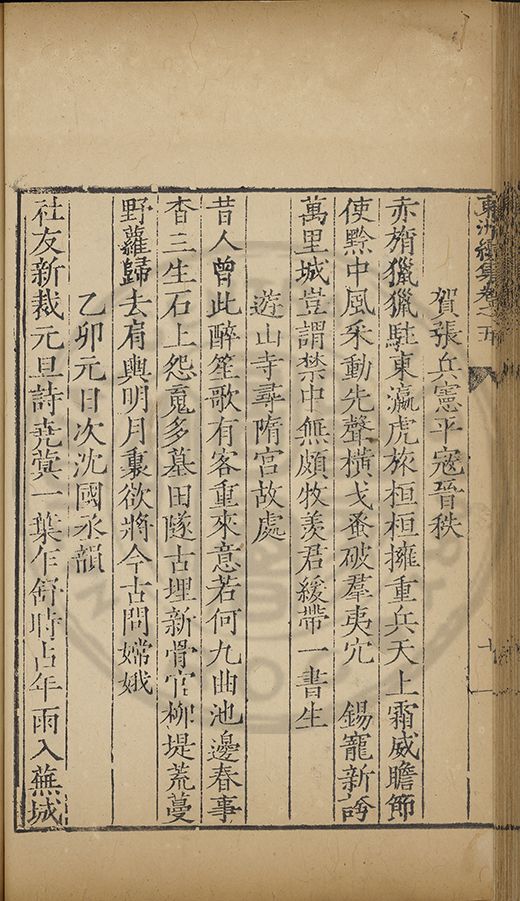 東洲續集卷之五
賀張兵憲平寇晉秩
赤斾獵獵駐東瀛虎旅桓桓擁重兵天上霜威瞻節
使黔中風采動先聲橫戈蚤破羣夷穴 錫寵新誇
萬里城豈謂禁中無頗牧羨君緩帶一書生
遊山寺尋隋宮故處
昔人曾此醉笙歌有客重來意若何九曲池邊春事
杳三生石上怨䰟多墓田隧古埋新骨官柳堤荒蔓
野蘿歸去有興明月裏欲將今古問嫦娥
乙卯元日次沈國丞韻
社友新裁元旦詩堯蓂一葉乍舒時占年雨入蕪城